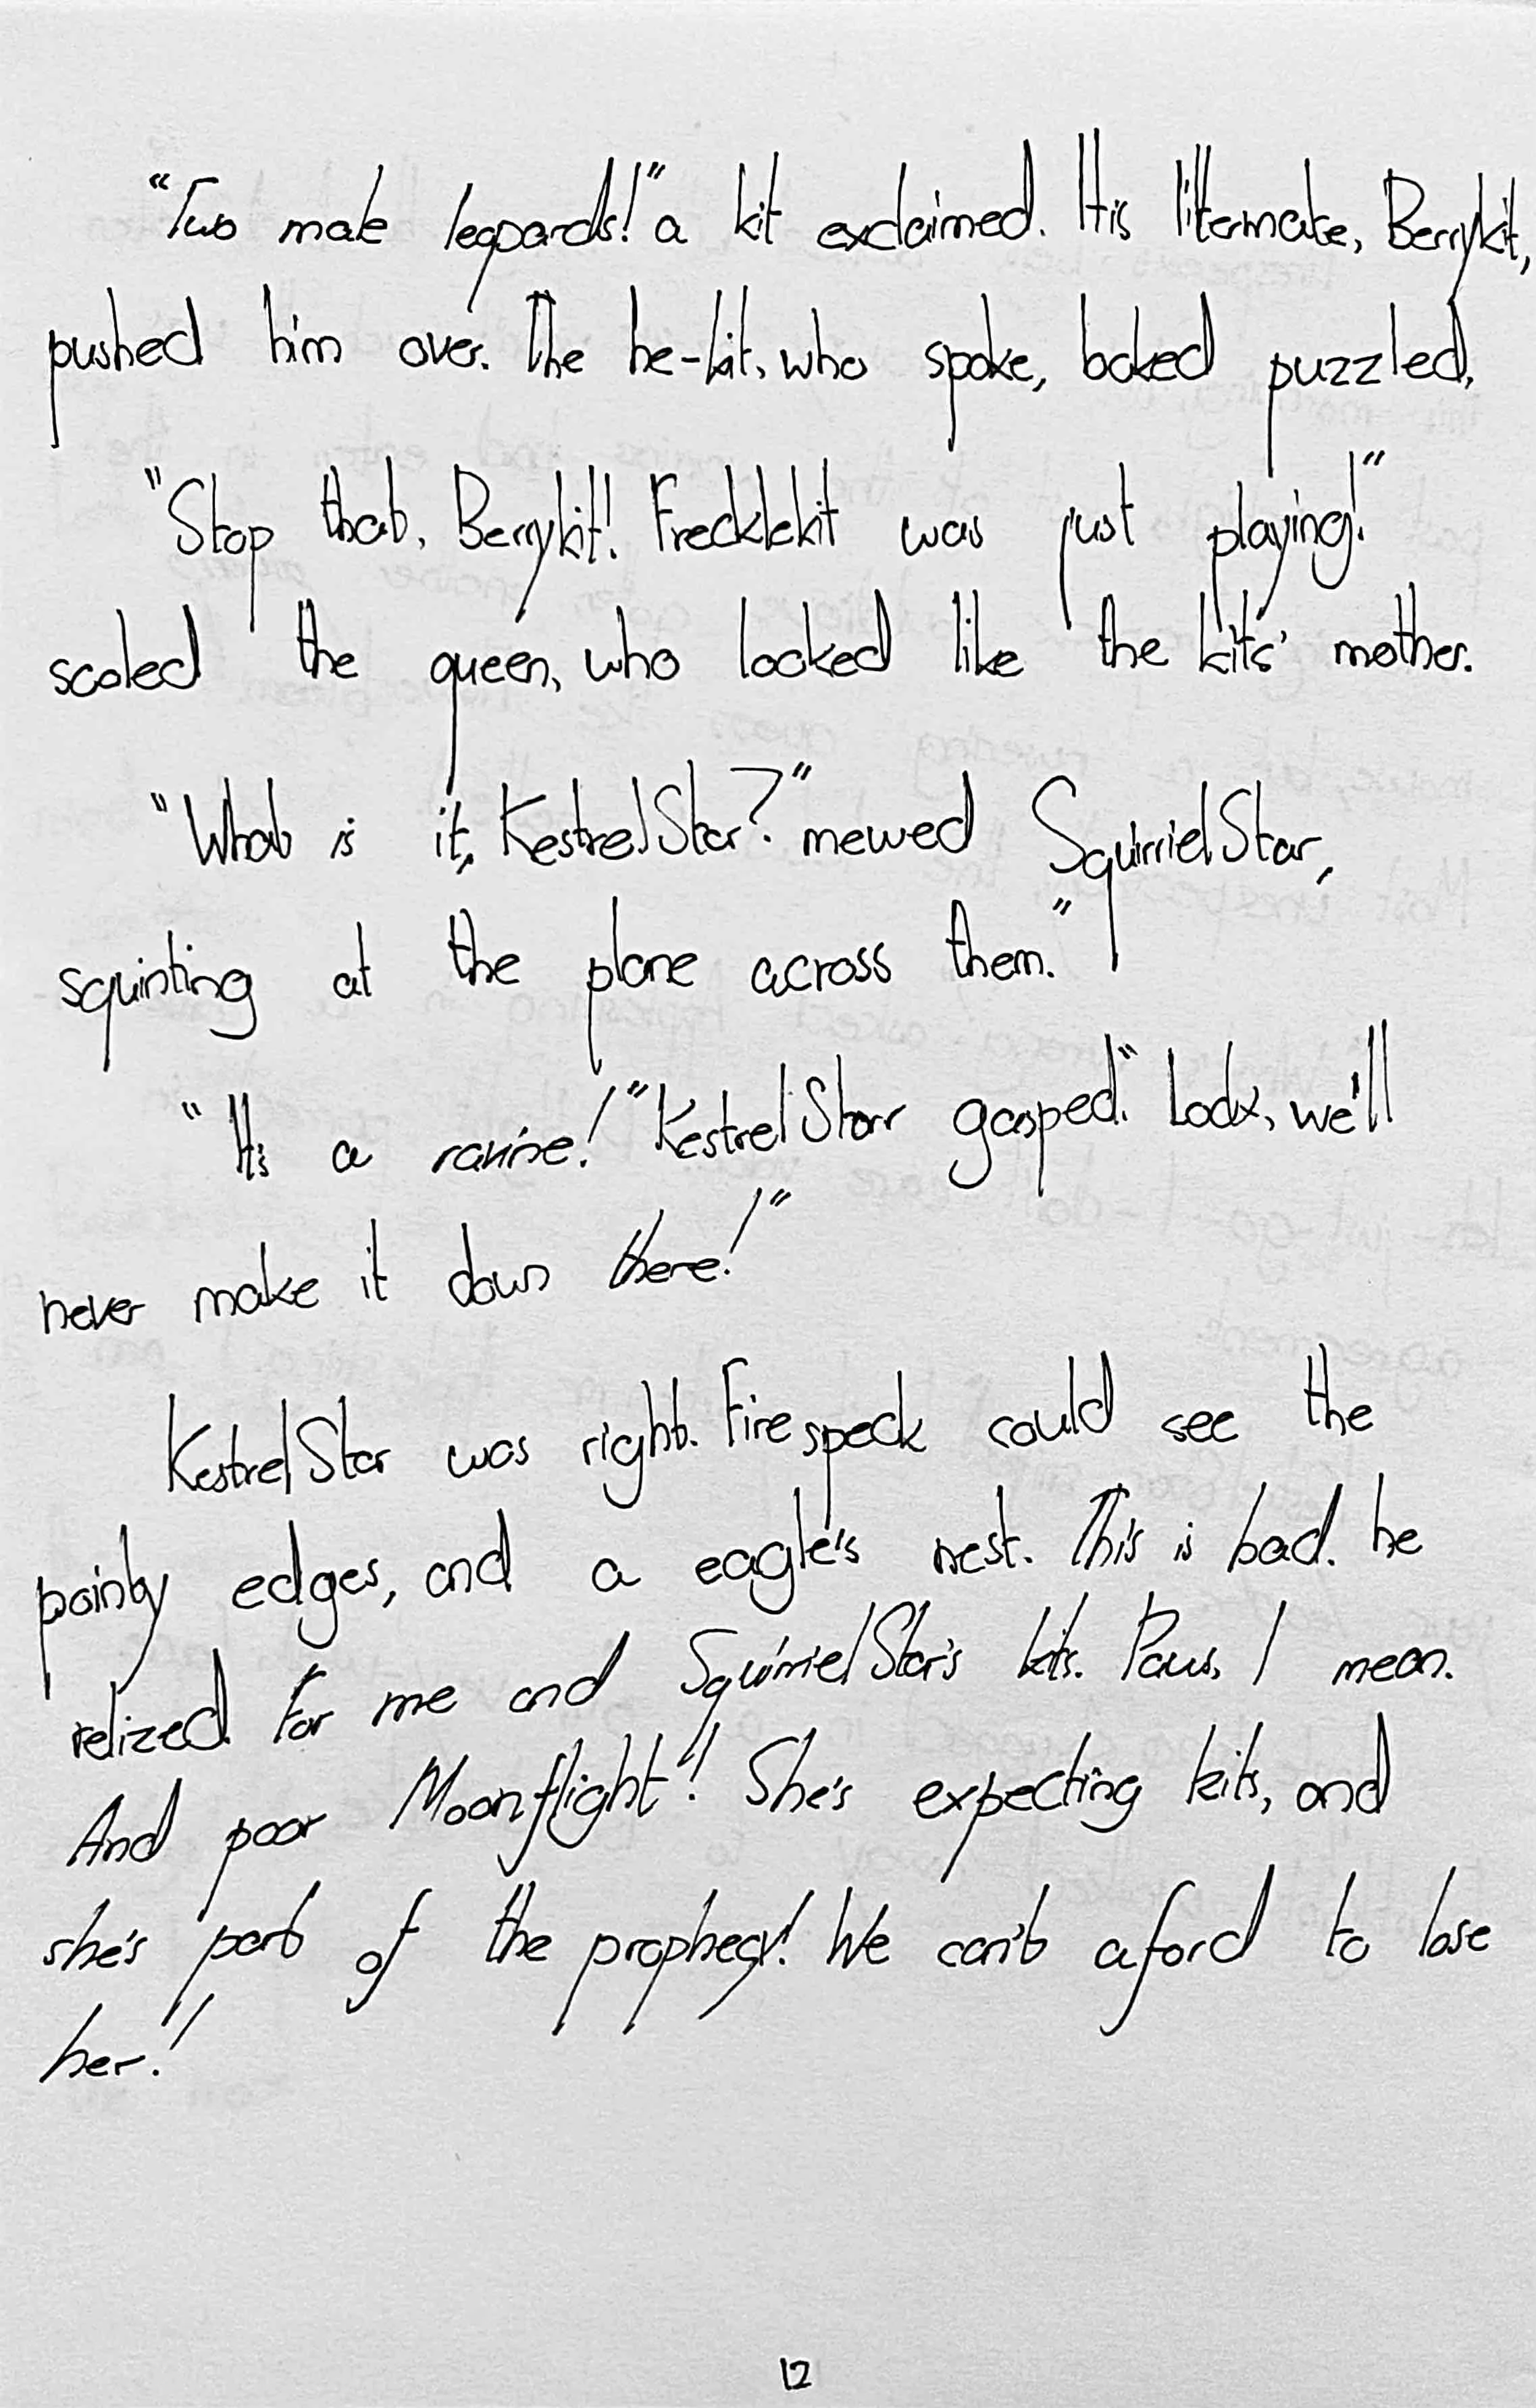 "Two male leopards!" a kit exclaimed. His litermate, Berrykit,
pushed him over. The he-kit, who spoke, looked puzzled.
"Stop that, Berrykit! Frecklekit was just playing!"
scoled the queen, who looked like the kits' mother.
"What is it, KestrelStar?" mewed SquirrielStar,
squinting at the plane across them."
"It's a ravine!" KestrelStar gasped. "Look, we'll
never make it down there!"
KestrelStar was right. Firespeck could see the
pointy edges, and a eagle's nest. This is bad. he
relized. For me and SquirrielStar's kits. Paws, I mean.
And poor Moonflight! She's expecting kits, and
she's part of the prophecy! We can't aford to lose
her!
12